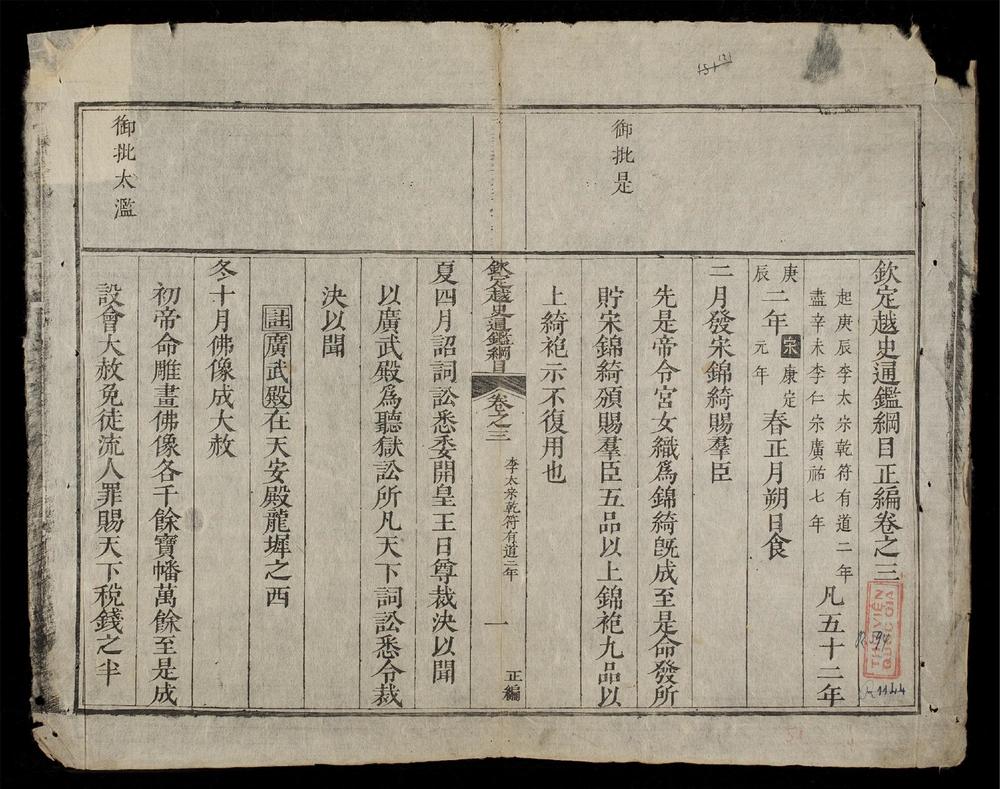 御批是
欽定越史通鑑綱目正編卷之三
起庚辰李太宗乾符有道二年
盡辛未李仁宗廣祐七年
凡五十二年
庚辰二年
宋康定元年
春正月朔日食
二月發宋錦綺賜羣臣
先是帝令宮女織爲錦綺旣成至是命發所
貯宋錦綺頒賜羣臣五品以上錦袍九品以
上綺袍示不復用也
欽定越史通鑑綱目
卷之三
李太宗乾符有道二年
一
正編
御批太濫
夏四月詔詞訟悉委開皇王日尊裁決以聞
以廣武殿爲聽獄訟所凡天下詞訟悉令裁
決以聞
註廣武殿在天安殿龍墀之西
冬十月佛像成大赦
初帝命雕畫佛像各千餘寶幡萬餘至是成
設會大赦免徒流人罪賜天下稅錢之半
THƯ VIỆN
QUỐC GIA
R.594
1144
151
121